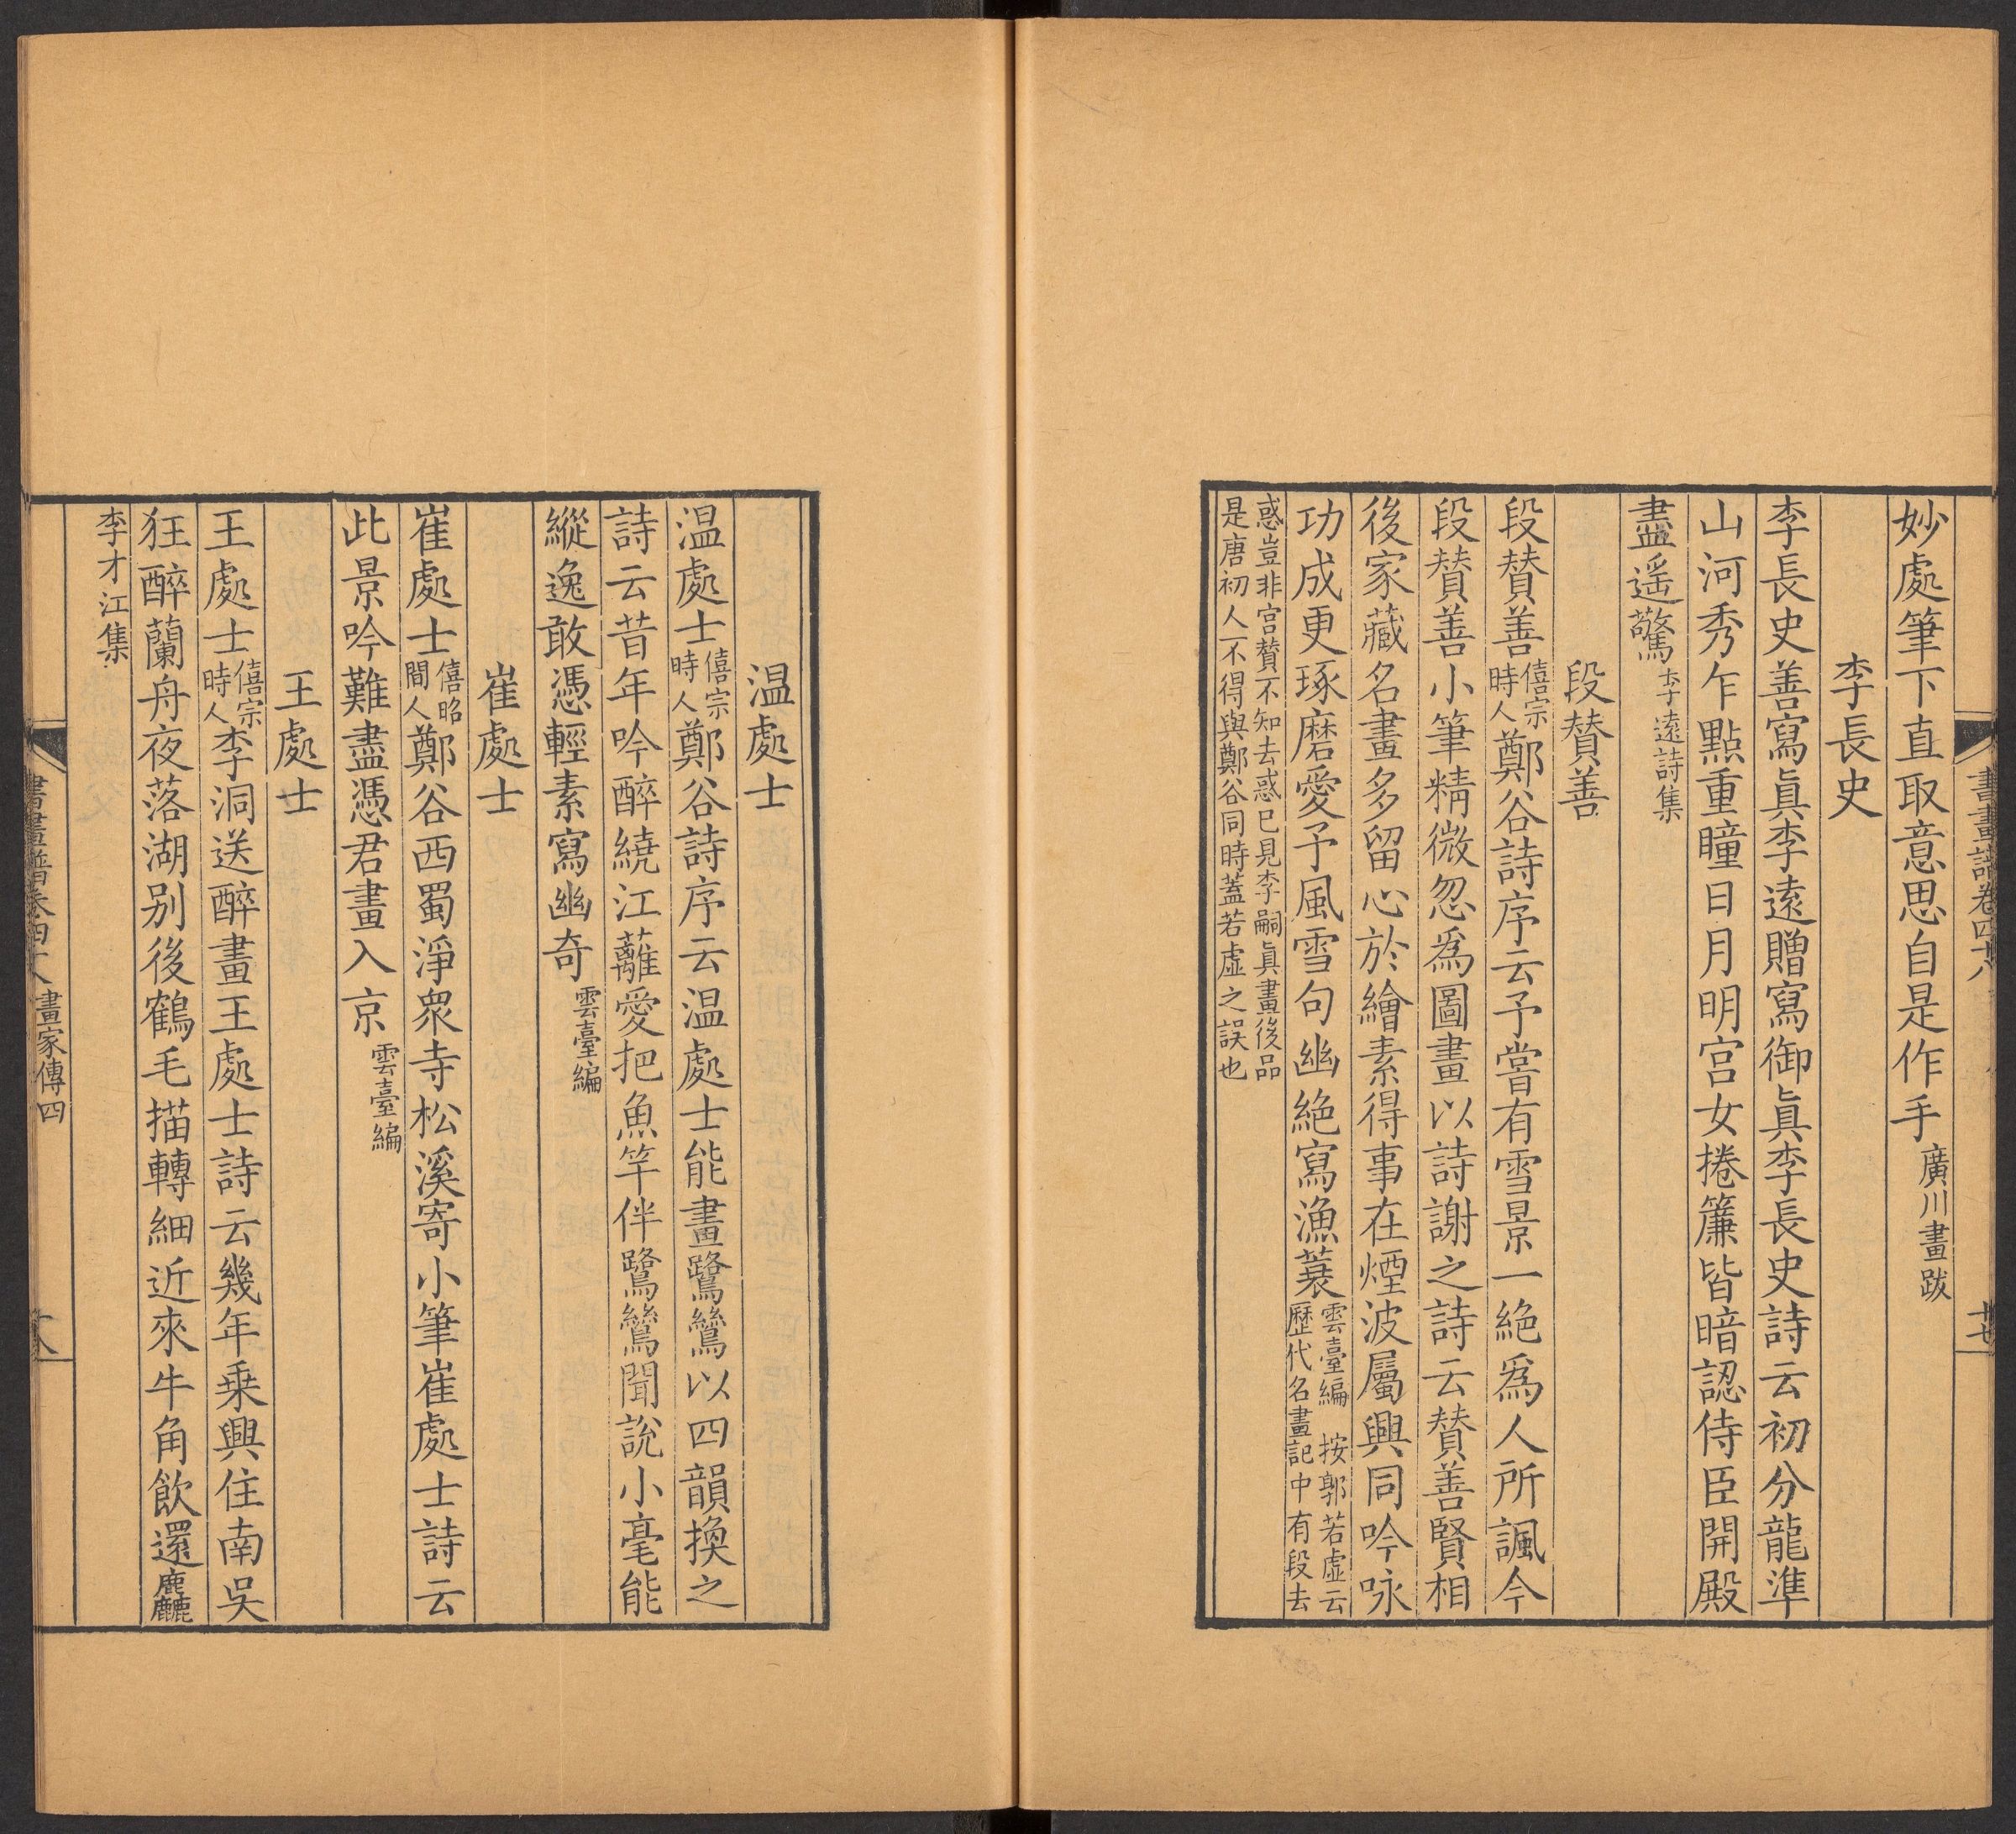 妙處筆下直取意思自是作手廣川畫跋
李長史
李長史善寫眞李遠贈寫御眞李長史詩云初分龍準
山河秀乍點重瞳日月明宫女捲簾皆暗認侍臣開殿
盡遥驚李遠詩集
段賛善
段賛善僖宗時人鄭谷詩序云予嘗有雪景一絶爲人所諷今
段賛善小筆精微忽爲圖畫以詩謝之詩云賛善賢相
後家藏名畫多留心於繪素得事在煙波屬興同吟咏
功成更琢磨愛予風雪句幽絶寫漁蓑雲臺編 按郭若虚云歴代名畫記中有段去
惑豈非宫賛不知去惑巳見李嗣眞畫後品
是唐初人不得與鄭谷同時蓋若虚之誤也
書畫譜卷四十八
廿七
温處士
温處士僖宗時人鄭谷詩序云温處士能畫鷺鷥以四韻換之
詩云昔年吟醉繞江蘺愛把魚竿伴鷺鷥聞說小毫能
縱逸敢憑輕素寫幽奇雲臺編
崔處士
崔處士僖昭間人鄭谷西蜀淨衆寺松溪寄小筆崔處士詩云
此景吟難盡憑君畫入京雲臺編
王處士
王處士僖宗時人李洞送醉畫王處士詩云幾年乗興住南吳
狂醉蘭舟夜落湖别後鶴毛描轉細近來牛角飲還麤
李才江集
書畫譜卷四十八 畫家傳四